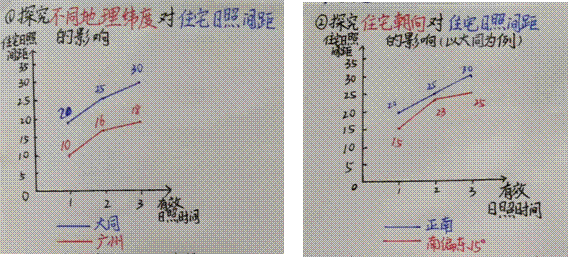 ①探究不同地理纬度对住宅日照间距
的影响
住宅日照
间距
35
30
25
20
15
10
5
0
20
25
30
10
16
18
1
2
3
有效
日照时间
大同
广州
②探究住宅朝向对住宅日照间距
的影响(以大同为例)
住宅日照
间距
35
30
25
20
15
10
5
0
20
25
30
15
23
25
1
2
3
有效
日照时间
正南
南偏东15°